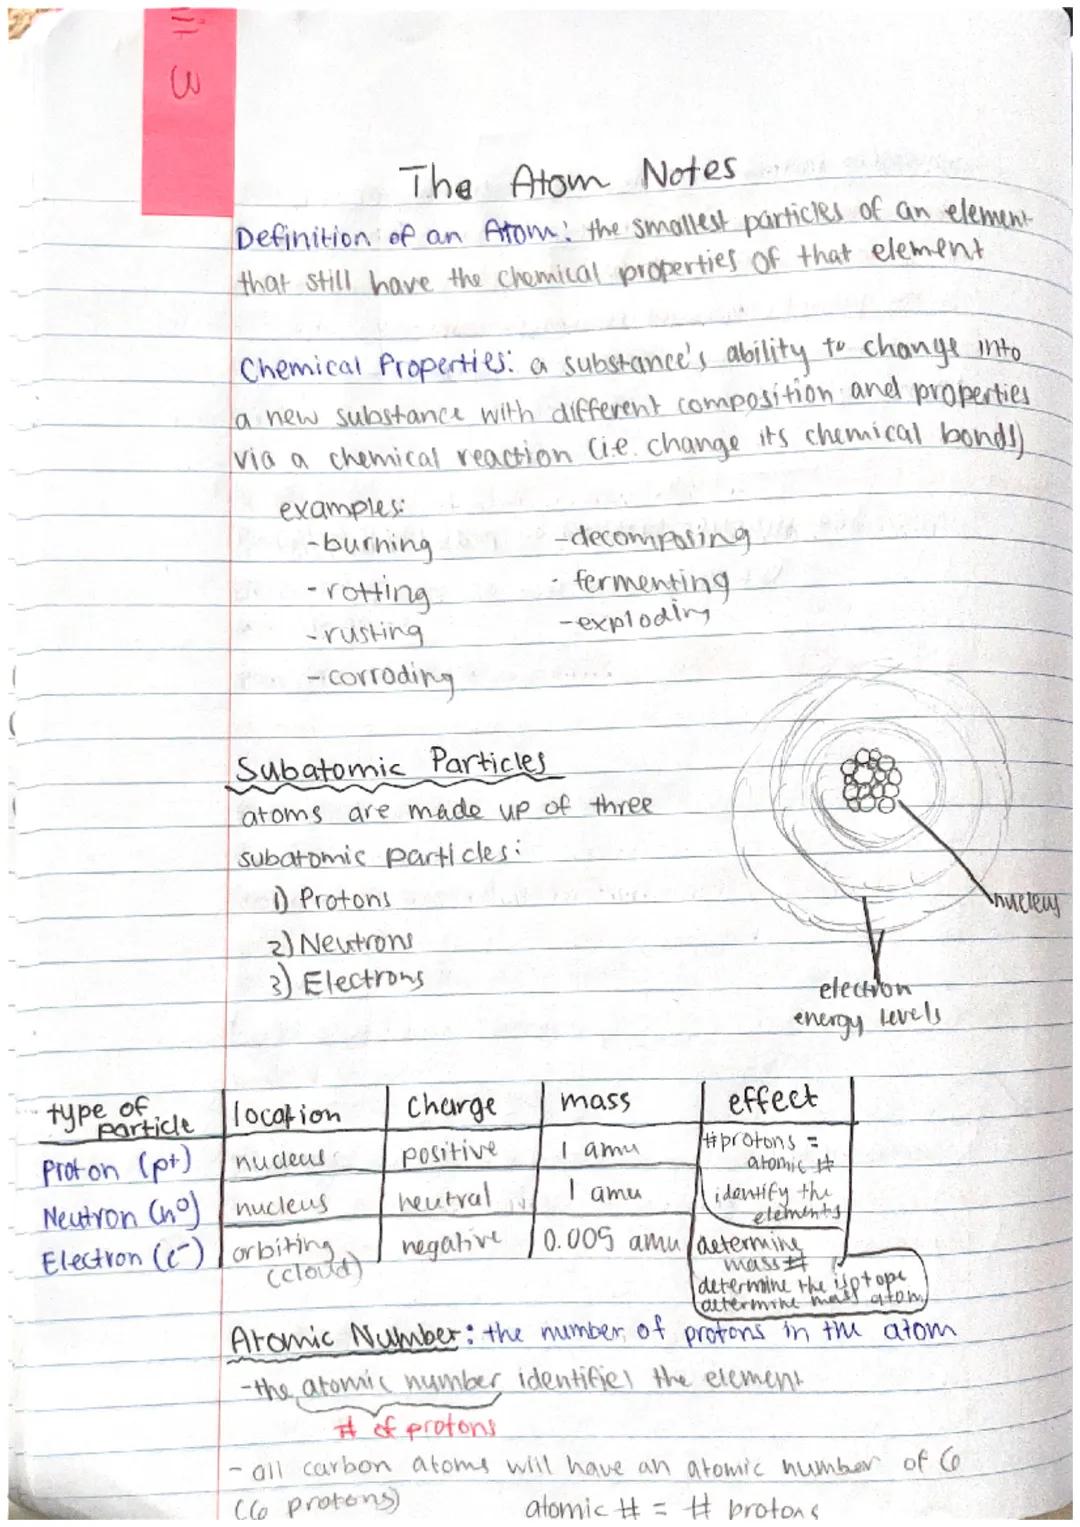 3
The Atom Notes
Definition of an Atom: the smallest particles of an element
that still have the chemical properties of that element
Chemical Properties: a substance's ability to change into
a new substance with different composition and properties
via a chemical reaction (i.e. change its chemical bonds)
examples:
-burning
-rotting
-rusting
-corroding
-decomposing
- fermenting
-exploding
Subatomic Particles
atoms are made up of three
subatomic particles:
1) Protons
2) Neutrons
3) Electrons
nucleus
electron
energy levels
type of particle location charge mass effect
Proton (p+) nucleus positive 1 amu #protons = atomic # identify the elements
Neutron (n⁰) nucleus neutral 1 amu determine mass # determine the isotope determine mass atom
Electron (e-) orbiting (cloud) negative 0.005 amu
Atomic Number: the number of protons in the atom
-the atomic number identifies the element
# of protons
- all carbon atoms will have an atomic number of 6
(6 protons) atomic # = # protons